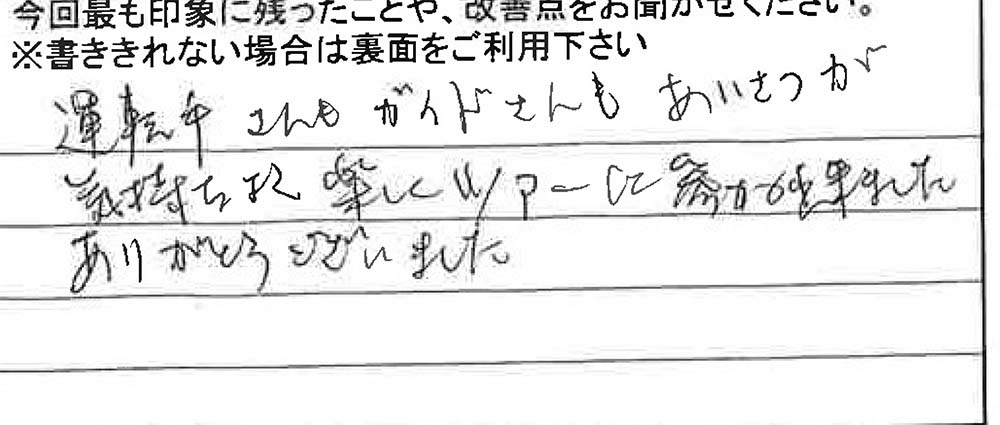 今回最も印象に残ったことや、改善点をお聞かせください。
※書ききれない場合は裏面をご利用下さい
運転手さんもガイドさんもあいさつが
気持ちよく楽しくツアーに参加出来ました
ありがとうございました